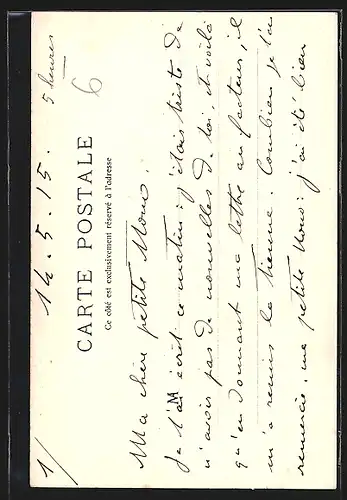 1/
14.5.15. 5 heures
6
CARTE POSTALE
Ce côté est exclusivement réservé à l'adresse
M
Ma chère petite Mono,
je t'ai écrit ce matin ; j'étais triste de
n'avoir pas de nouvelles de toi, et voilà
qu'en donnant ma lettre au facteur, il
m'a remis la tienne. Combien je t'en
remercie, ma petite Mono ; j'ai été bien